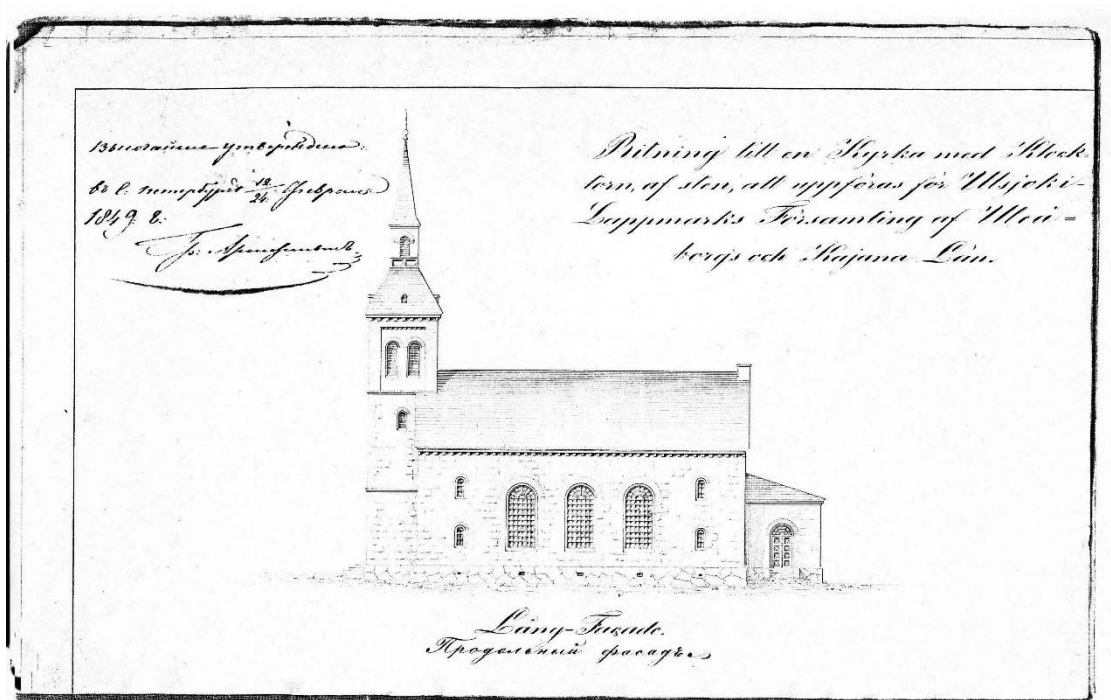 Высочайше утверждено.
въ С. петербургѣ 12/24. Февраля
1849. г.
Гр:
Ritning till en Kyrka med Klock-
torn, af sten, att uppföras för Utsjoki-
Lappmarks Församling af Uleå-
borgs och Kajana Län.
Lång-Façade.
Продольный фасадъ.